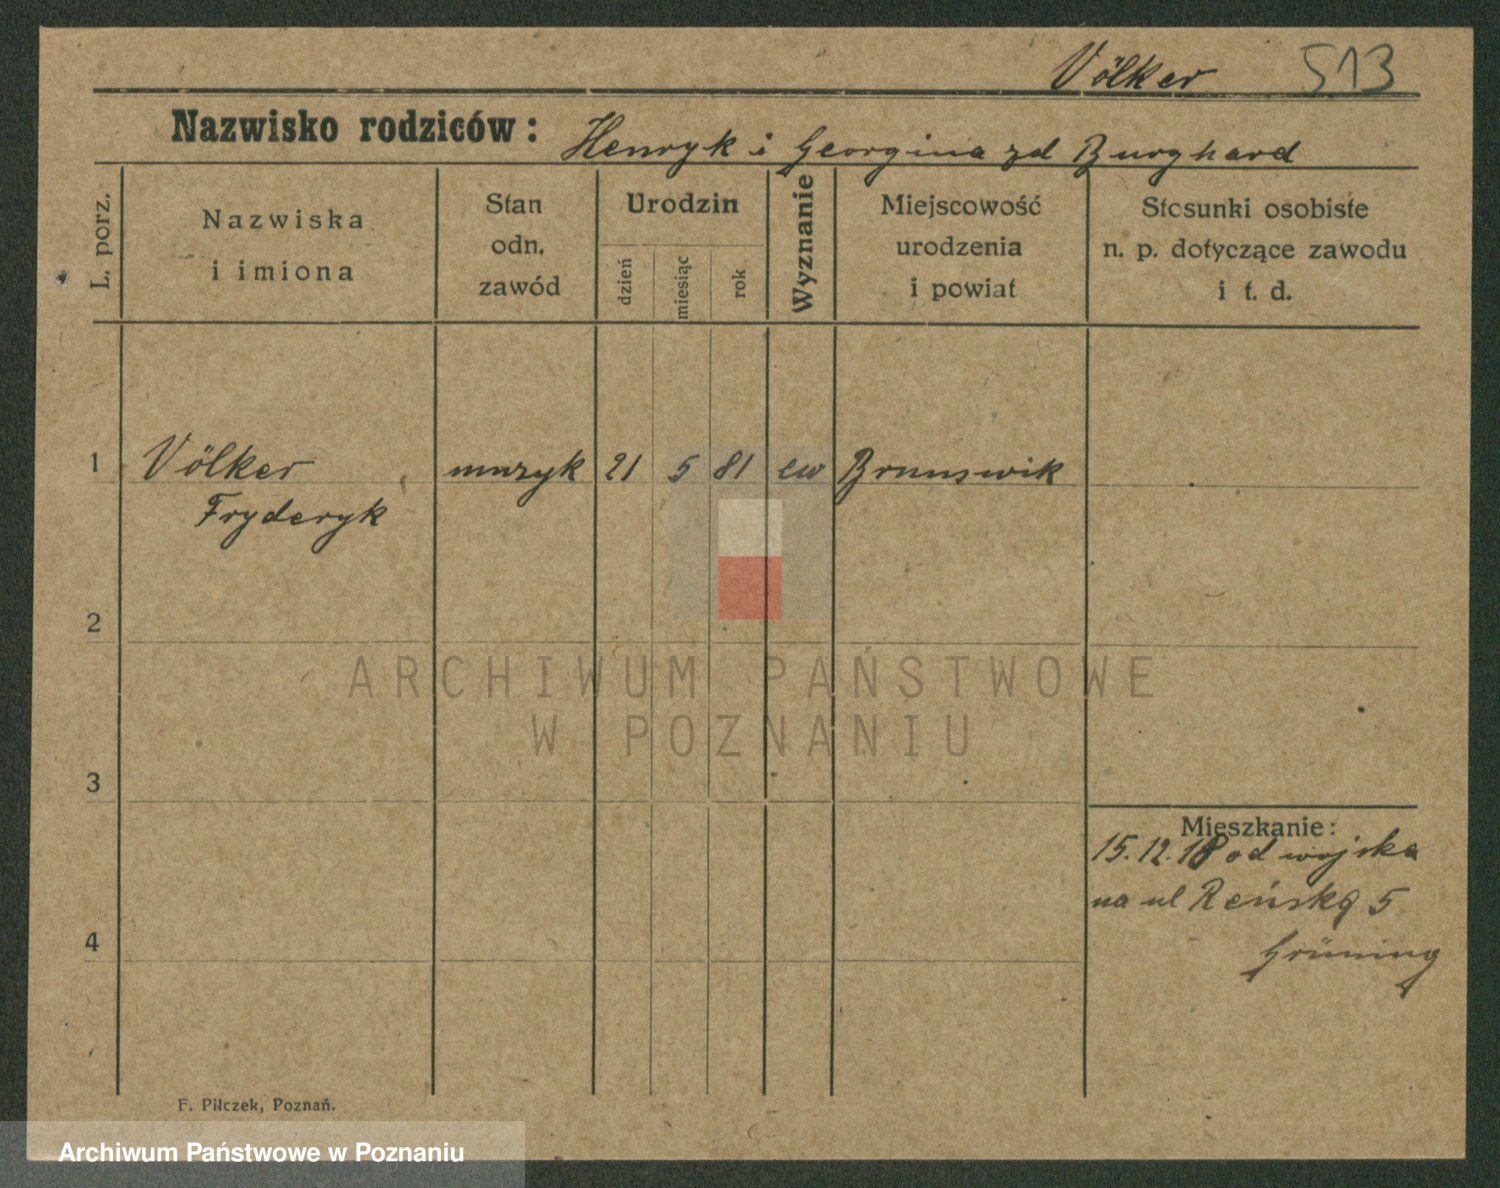 Völker 513
Nazwisko rodziców: Henryk i Georgina zd Burghard
L. porz.
Nazwiska
i imiona
Stan
odn.
zawód
Urodzin
dzień
miesiąc
rok
Wyznanie
Miejscowość
urodzenia
i powiat
Stosunki osobiste
n. p. dotyczące zawodu
i t. d.
1 Völker muzyk 21 5 81 ew Brunswik
Fryderyk
2
3
4
Mieszkanie:
15.12.18 od wojska
na ul Reńską 5
Grüning
F. Pilczek, Poznań.
ARCHIWUM PAŃSTWOWE
W POZNANIU
Archiwum Państwowe w Poznaniu